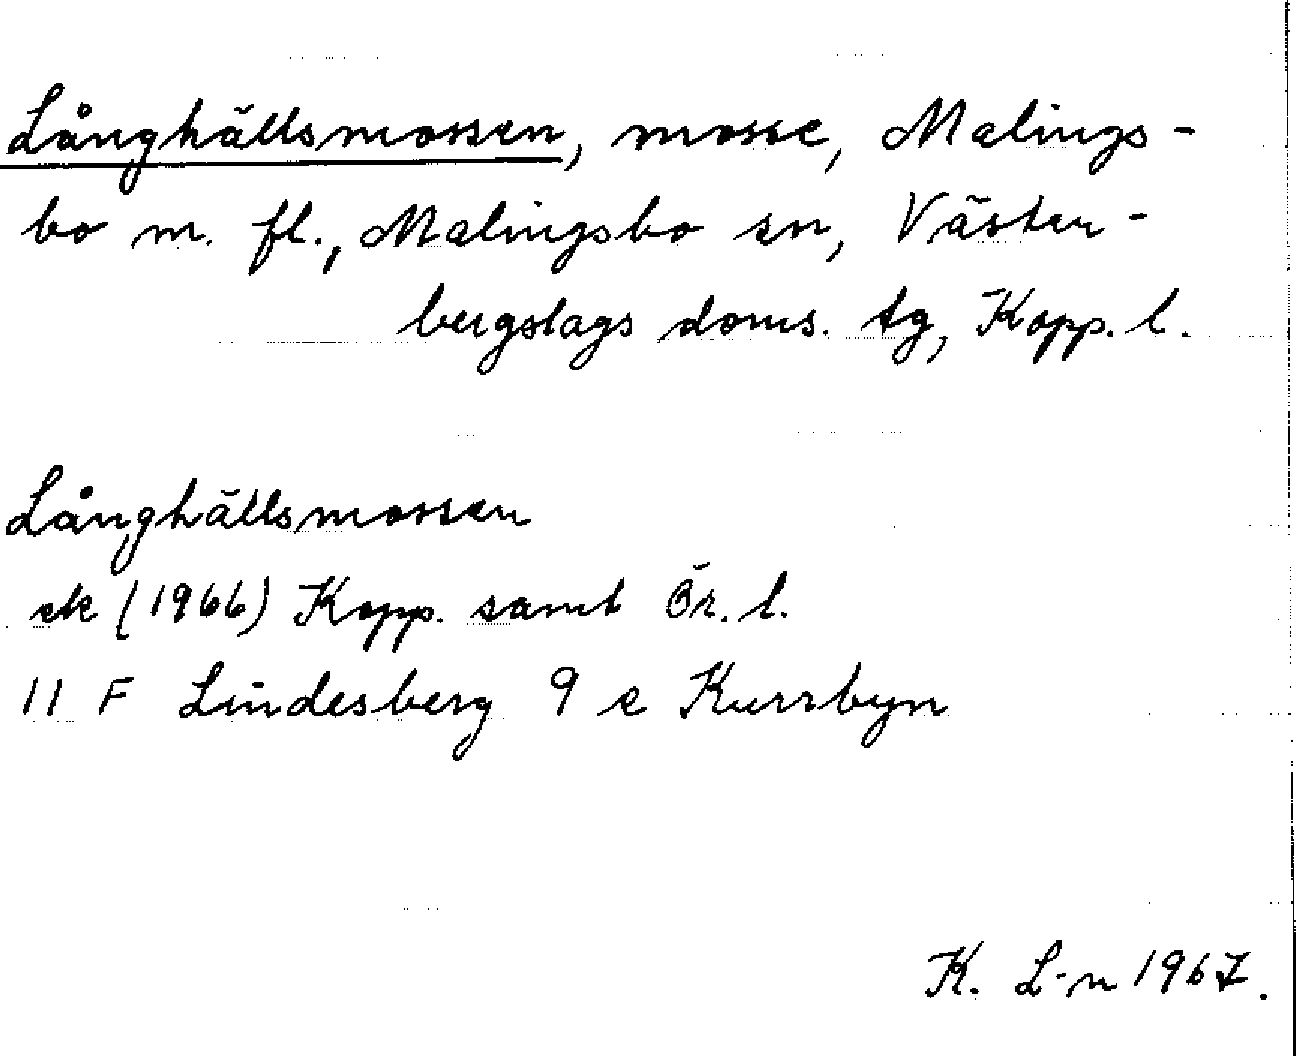 Långhällsmossen, mosse, Malings-
bo m. fl., Malingsbo sn, Väster-
bergslags doms. tg, Kopp. l.
Långhällsmossen
ek (1966) Kopp. samt Ör. l.
11 F Lindesberg 9 e Kurrbyn
K. L-n 1967.